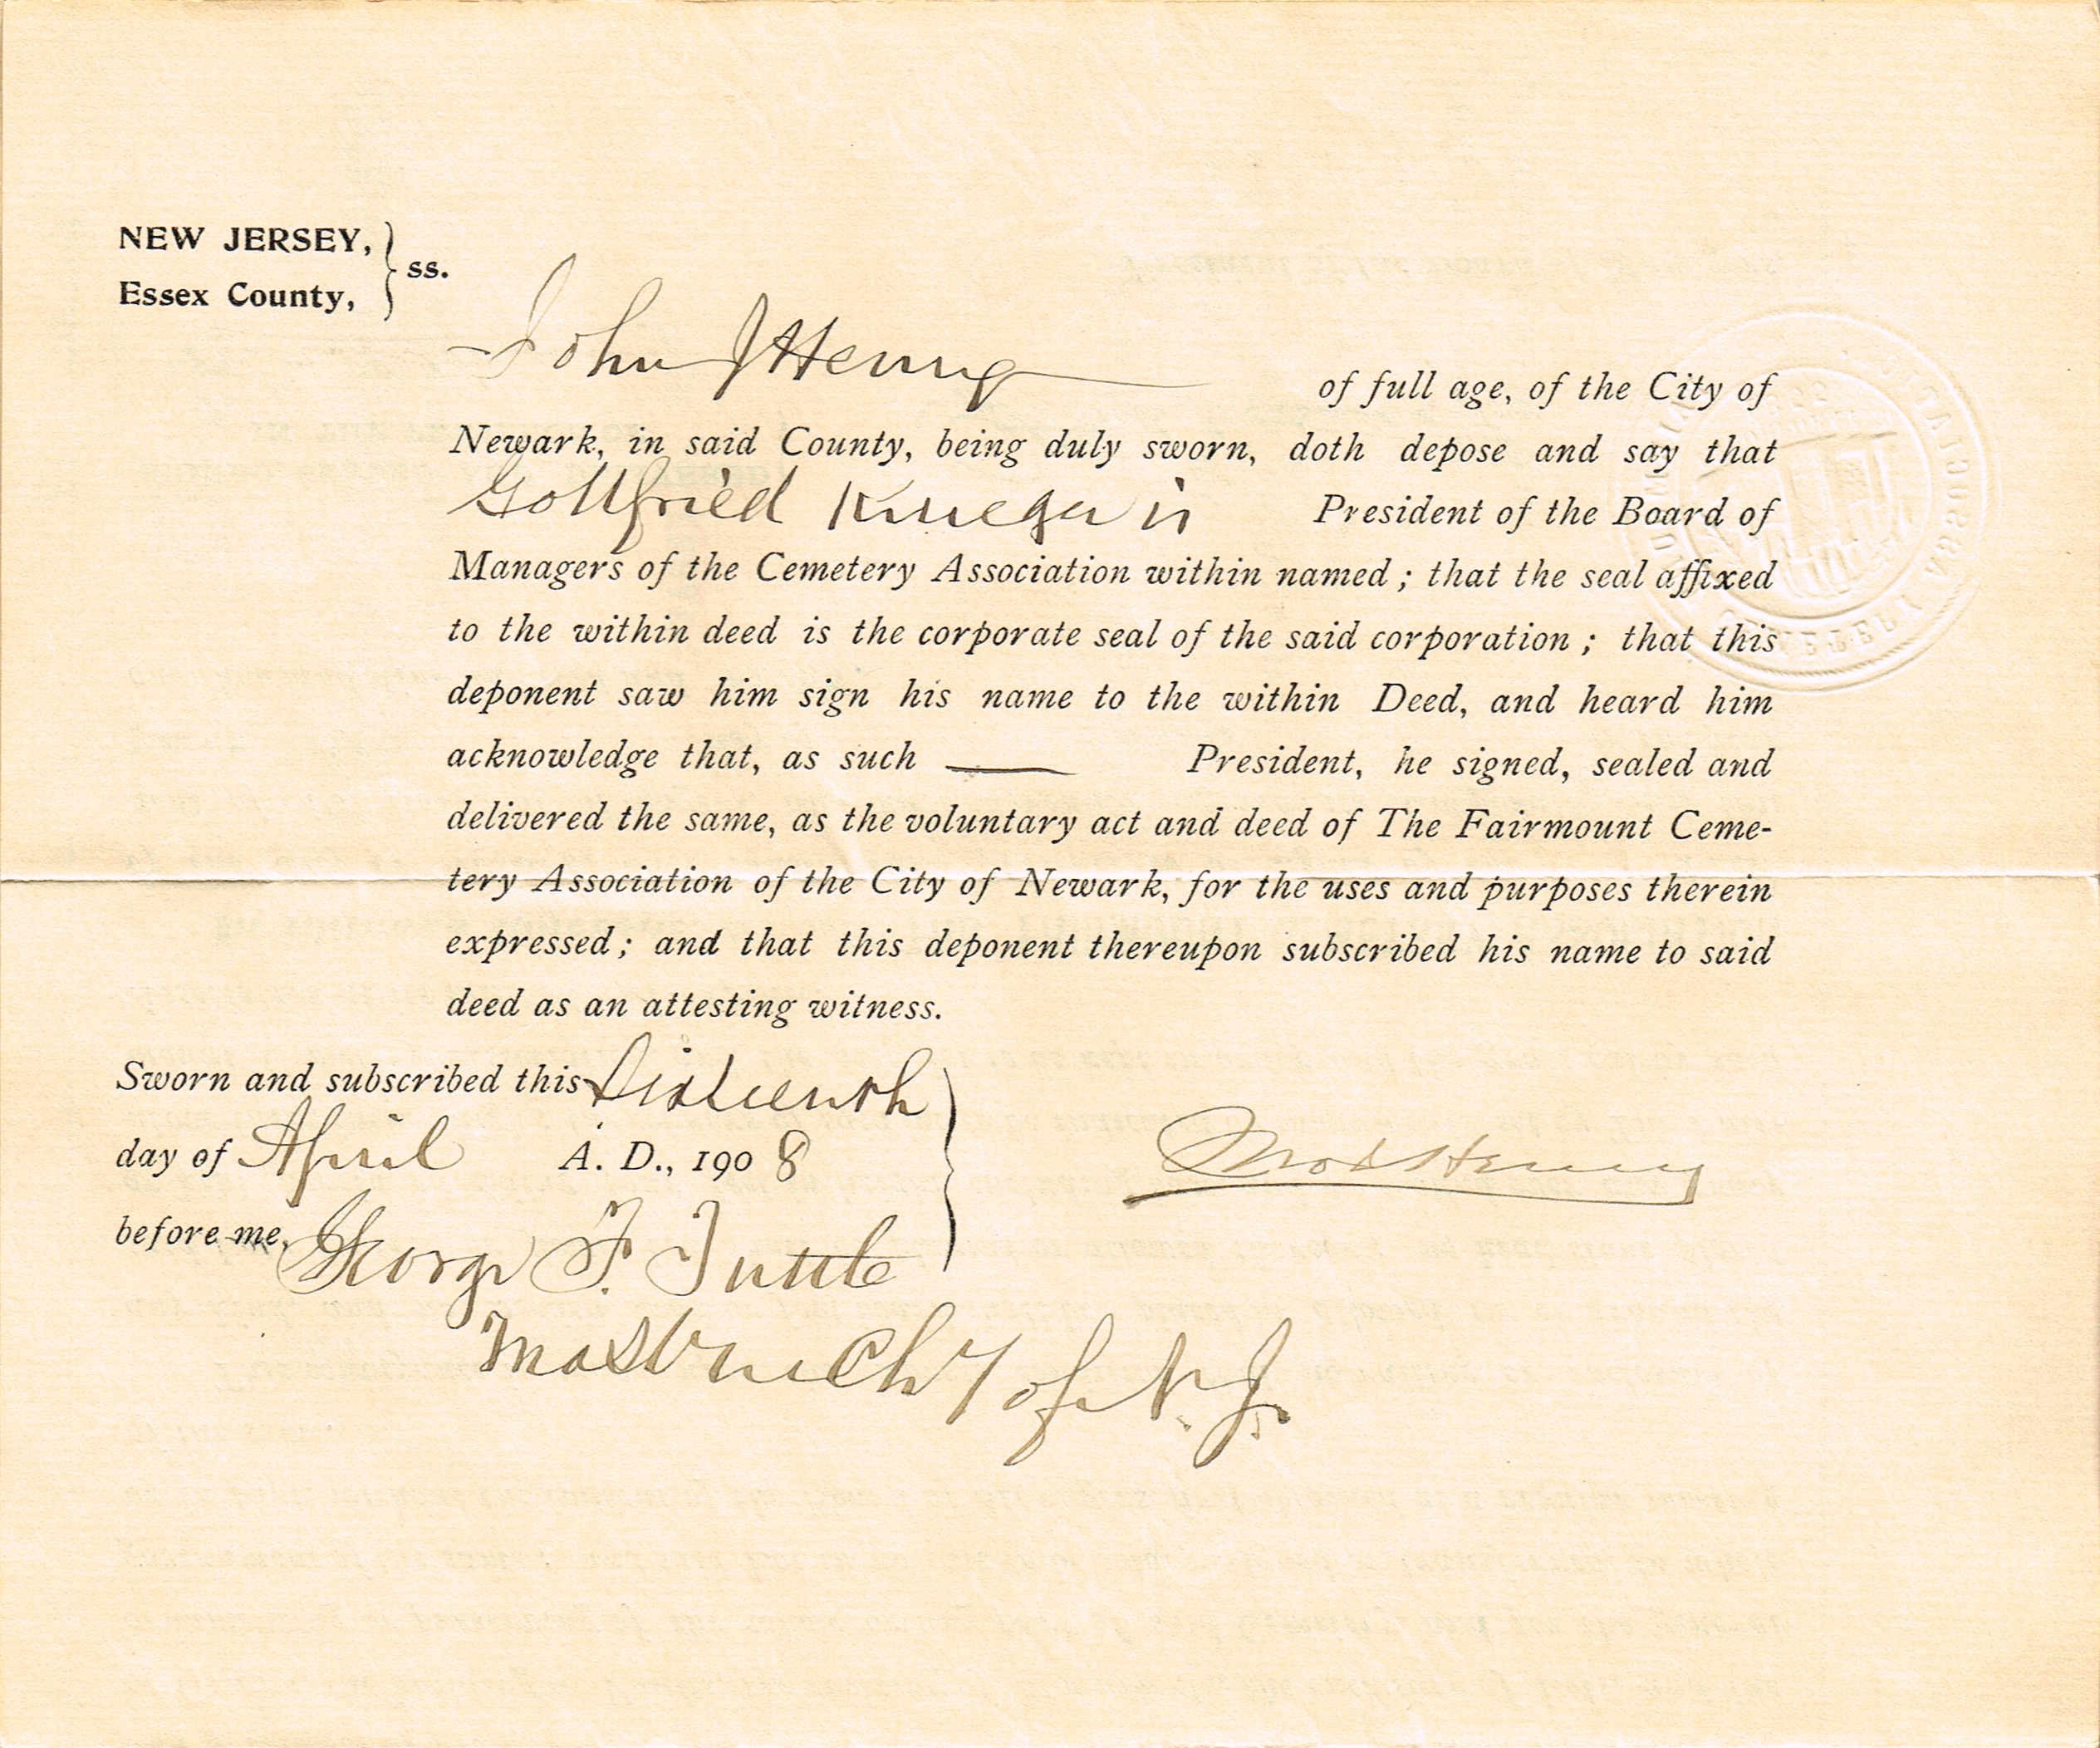 NEW JERSEY,
Essex County,
ss.
John J Henry
of full age, of the City of
Newark, in said County, being duly sworn, doth depose and say that
Gottfried Krueger is President of the Board of
Managers of the Cemetery Association within named; that the seal affixed
to the within deed is the corporate seal of the said corporation; that this
deponent saw him sign his name to the within Deed, and heard him
acknowledge that, as such — President, he signed, sealed and
delivered the same, as the voluntary act and deed of The Fairmount Ceme-
tery Association of the City of Newark, for the uses and purposes therein
expressed; and that this deponent thereupon subscribed his name to said
deed as an attesting witness.
Sworn and subscribed this Sixteenth
day of April A. D., 1908
before me,
George F. Tuttle
Jno J Henry
Mas in Chy of N. J.